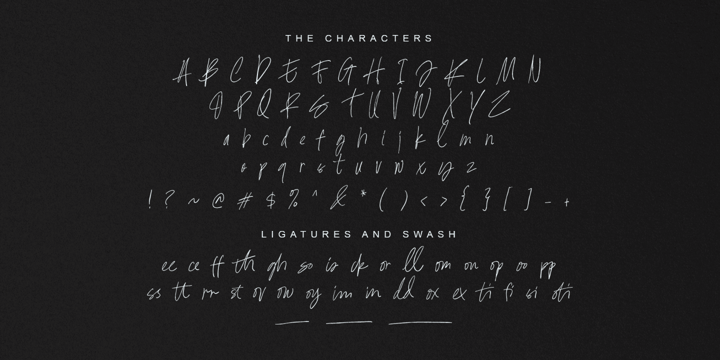 THE CHARACTERS
A B C D E F G H I J K L M N
O P Q R S T U V W X Y Z
a b c d e f g h i j k l m n
o p q r s t u v w x y z
! ? ~ @ # $ % ^ & * ( ) < > { } [ ] - +
LIGATURES AND SWASH
ee ce ff th gh so is ck or ll om on op oo pp
ss tt rr st ov ow oy im in dd ox ex ti fi si oti